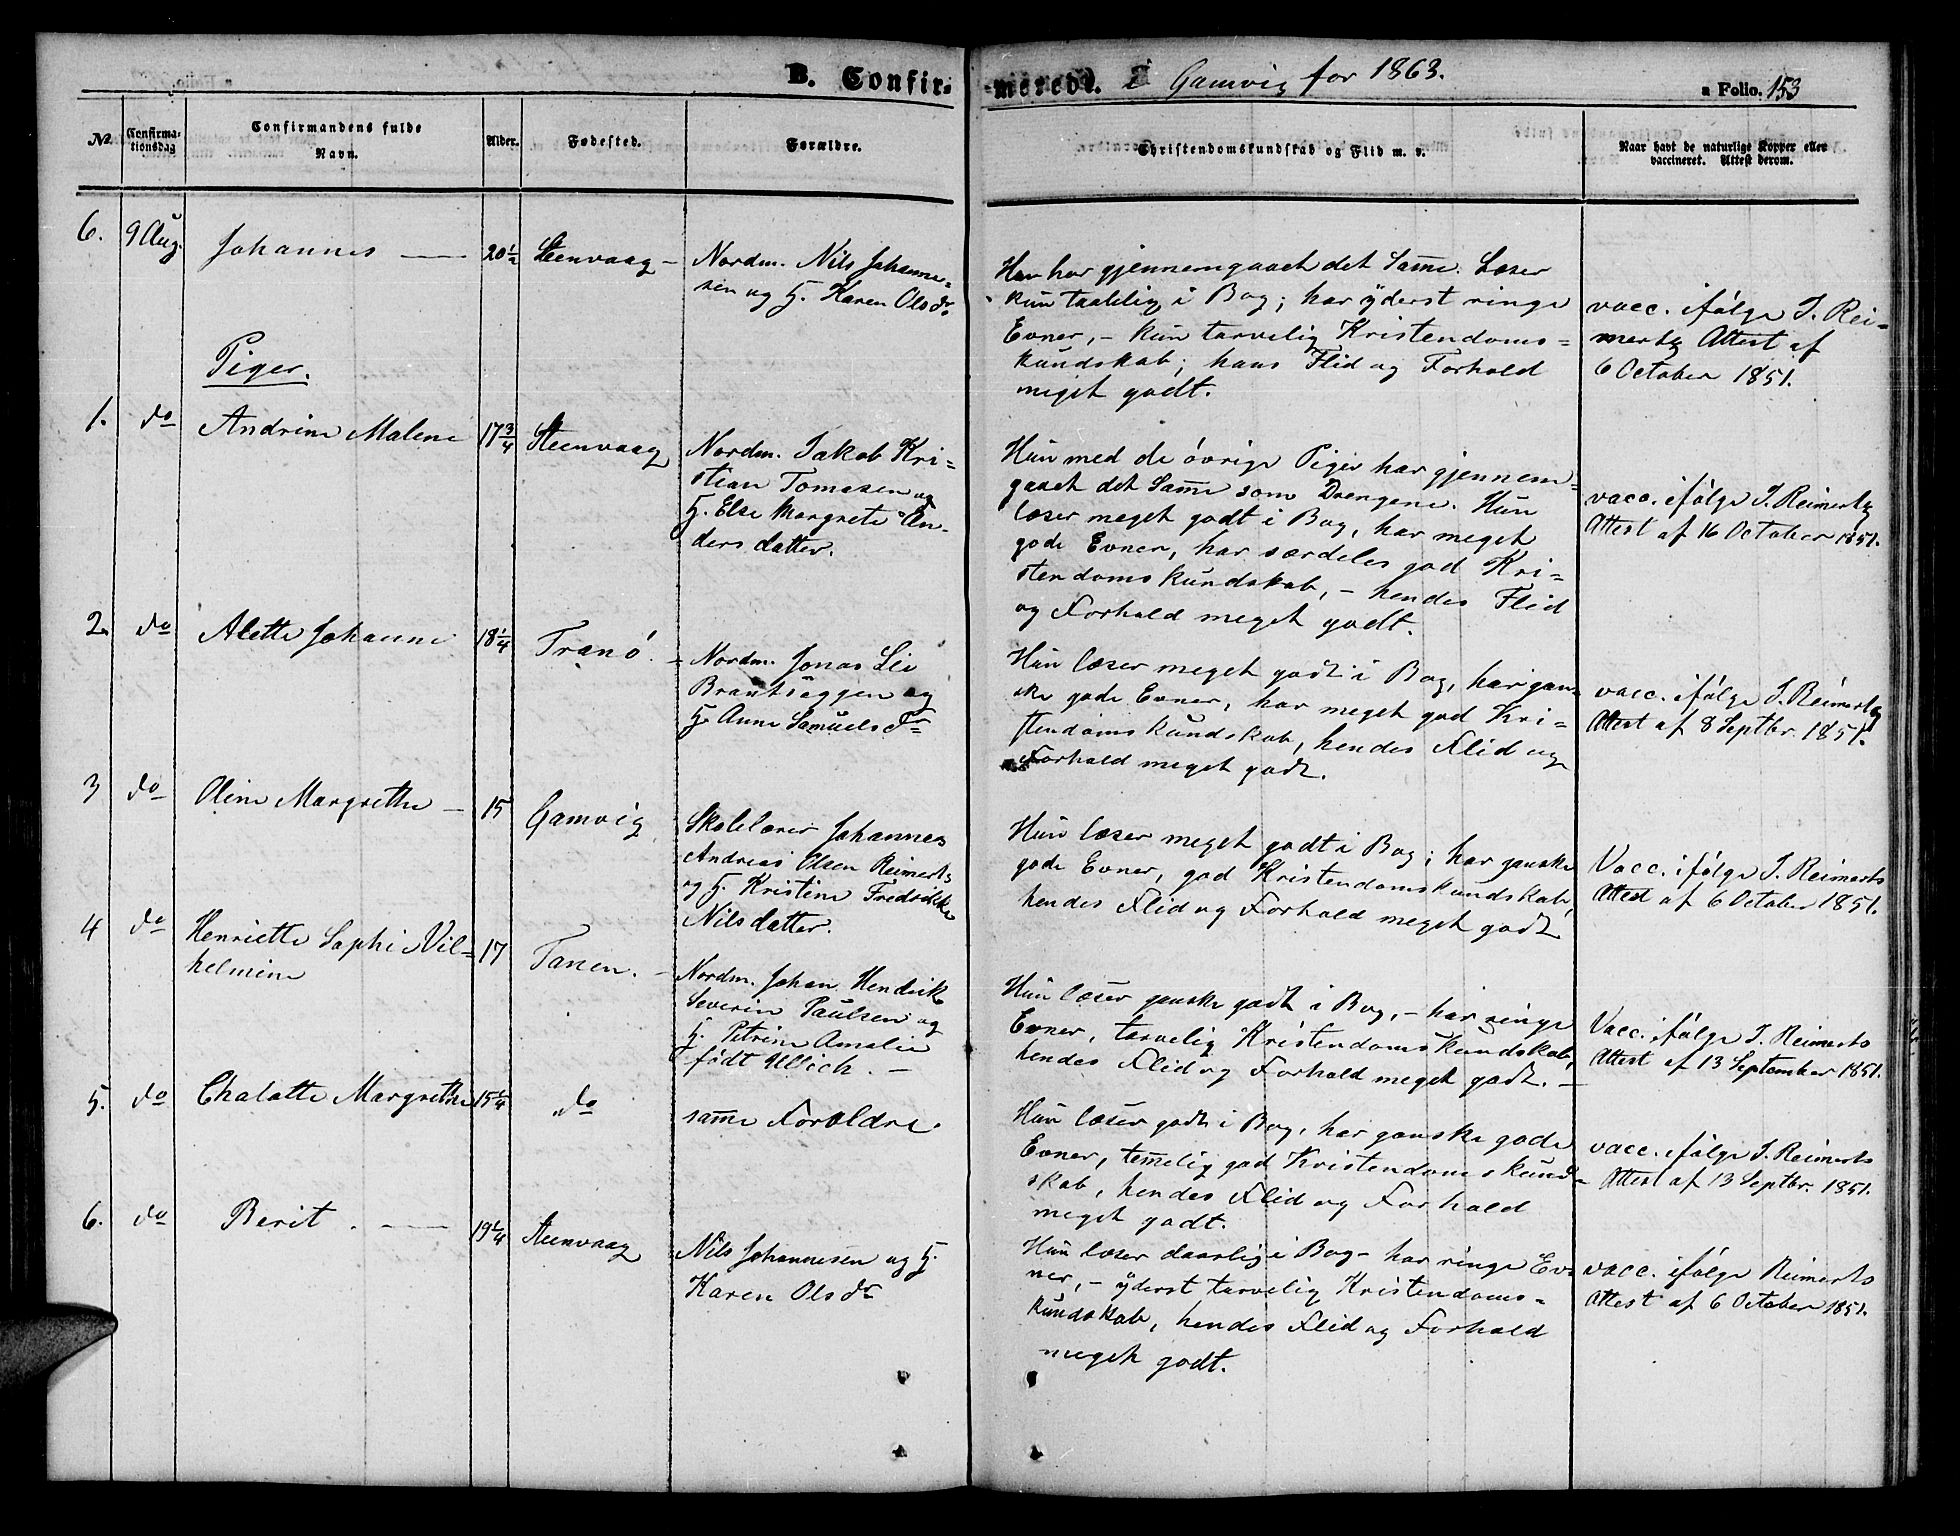 B. Confirmerede. i Gamvig for 1863.
a Folio. 153
№.
Confirmationsdag
Confirmandens fulde Navn.
Alder.
Fødested.
Forældre.
Christendomskundskab og Flid m. v.
Naar havt de naturlige Kopper eller vaccineret. Attest derom.
6. 9 Aug. Johannes 20 1/2 Steenvaag -
Nordm. Nils Johanne-
sen og H. Karen Olsdr.
Han har gjennemgaaet det Samme. Læser
kun taalelig i Bog; har yderst ringe
Evner, - kun tarvelig Kristendoms=
kundskab; hans Flid og Forhold
meget godt.
vacc. ifølge J. Rei=
mertz Attest af
6 October 1851.
Piger.
1. do Andrine Malene 17 3/4 Steenvaag
Nordm. Jakob Kri=
stian Tomasen og
H. Else Margrete An-
ders datter.
Hun med de øvrige Piger har gjennem=
gaaet det Samme som Drengene. Hun
læser meget godt i Bog, har meget
gode Evner, har særdeles god Kri=
stendomskundskab, - hendes Flid
og Forhold meget godt.
vacc. ifølge J. Reimertz
Attest af 16 October 1851.
2. do Alette Johanne 18 1/4 Tranö. -
Nordm. Jonas Lie
Brantsæggen og
H. Anne Samuelsdr
Hun læser meget godt i Bog, har gan=
ske gode Evner, har meget god Kri=
stendomskundskab, hendes Flid og
Forhold meget godt.
vacc. ifølge J. Reimertz
Attest af 8 Septbr. 1851.
3 do Oline Margrethe - 15 Gamvig
Skolelærer Johannes
Andreas Olsen Reimerts
og H. Kristine Fredrikke
Nilsdatter.
Hun læser meget godt i Bog; har ganske
gode Evner, god Kristendomskundskab,
hendes Flid og Forhold meget godt
Vacc. ifølge J. Reimerts
Attest af 6 October 1851.
4 do Henriette Sophie Vil=
helmine
17 Tanen. -
Nordm. Johan Hendrik
Severin Paulsen og
H. Petrine Amalie
födt Ullich. -
Hun læser ganske godt i Bog, - har ringe
Evner, tarvelig Kristendomskundskab,
hendes Flid og Forhold meget godt. -
Vacc. ifølge J. Reimerts
Attest af 13 September 1851.
5. do Chalotte Margrethe 15 1/4 do
samme Forældre.
Hun læser godt i Bog, har ganske gode
Evner, temmelig god Kristendomskund=
skab, hendes Flid og Forhold
meget godt.
vacc. ifølge J. Reimerts
Attest af 13 Septbr. 1851.
6. do Berit. 19 1/4 Steenvaag
Nils Johannesen og H.
Karen Olsdr
Hun læser daarlig i Bog - har ringe Ev=
ner, - yderst tarvelig Kristendoms=
kundskab, hendes Flid og Forhold
meget godt.
vacc. ifølge Reimerts
Attest af 6 October 1851.